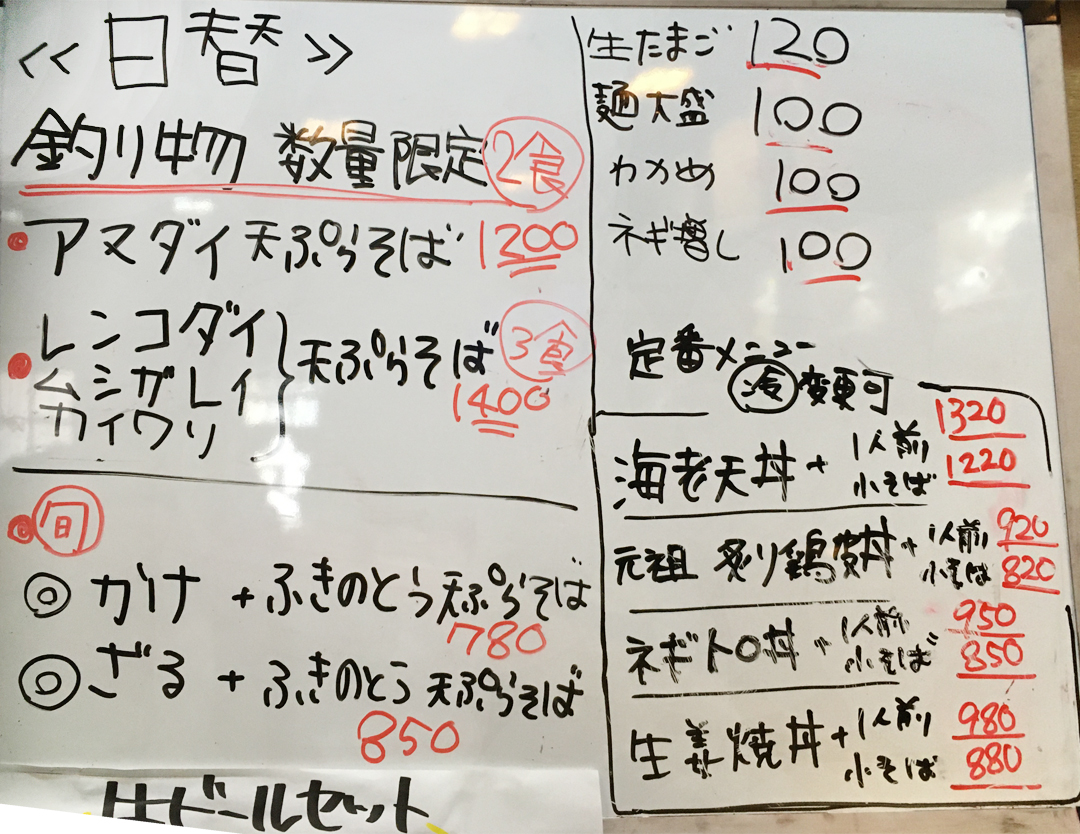 ≪日替≫
釣り物 数量限定 2食
アマダイ天ぷらそば 1200
レンコダイ
ムシガレイ
カイワリ
天ぷらそば 3食
1400
旬
◎ かけ + ふきのとう天ぷらそば
780
◎ ざる + ふきのとう天ぷらそば
850
生ビールセット
生たまご 120
麺大盛 100
わかめ 100
ネギ増し 100
定番メニュー
変更可
海老天丼 + 1人前 1320
小そば 1220
元祖 炙り鶏皮丼 + 1人前 920
小そば 820
ネギトロ丼 + 1人前 950
小そば 850
生姜焼丼 + 1人前 980
小そば 880